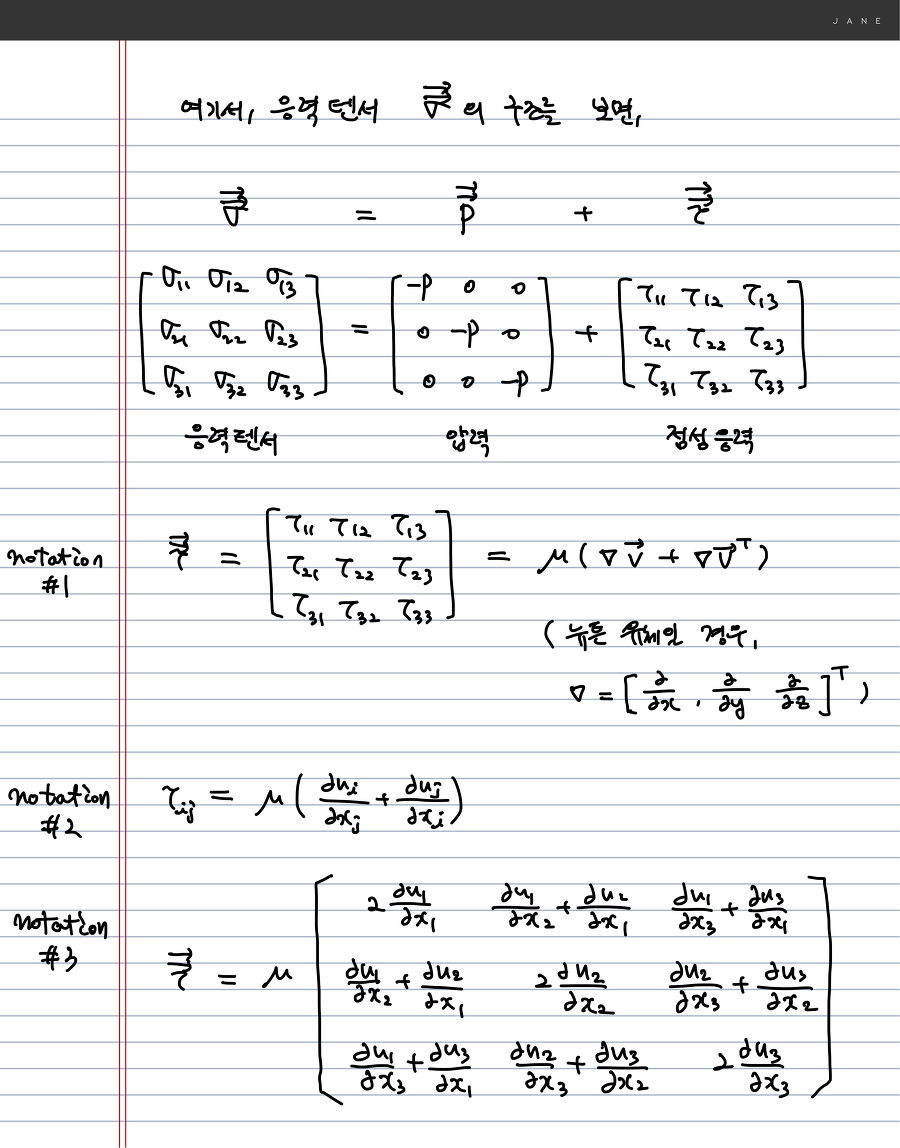 JANE
여기서, 응력 텐서 σ⃗⃗ 의 구조를 보면,
σ⃗⃗ = p⃗⃗ + τ⃗⃗
[σ₁₁ σ₁₂ σ₁₃; σ₂₁ σ₂₂ σ₂₃; σ₃₁ σ₃₂ σ₃₃] = [-P 0 0; 0 -P 0; 0 0 -P] + [τ₁₁ τ₁₂ τ₁₃; τ₂₁ τ₂₂ τ₂₃; τ₃₁ τ₃₂ τ₃₃]
응력텐서 압력 점성응력
notation #1 τ⃗⃗ = [τ₁₁ τ₁₂ τ₁₃; τ₂₁ τ₂₂ τ₂₃; τ₃₁ τ₃₂ τ₃₃] = μ(∇v⃗ + ∇v⃗ᵀ)
(뉴튼 유체일 경우,
∇ = [∂/∂x, ∂/∂y ∂/∂z]ᵀ)
notation #2 τᵢⱼ = μ(∂uᵢ/∂xⱼ + ∂uⱼ/∂xᵢ)
notation #3 τ⃗⃗ = μ [2 ∂u₁/∂x₁ ∂u₁/∂x₂ + ∂u₂/∂x₁ ∂u₁/∂x₃ + ∂u₃/∂x₁;
∂u₁/∂x₂ + ∂u₂/∂x₁ 2 ∂u₂/∂x₂ ∂u₂/∂x₃ + ∂u₃/∂x₂;
∂u₁/∂x₃ + ∂u₃/∂x₁ ∂u₂/∂x₃ + ∂u₃/∂x₂ 2 ∂u₃/∂x₃]